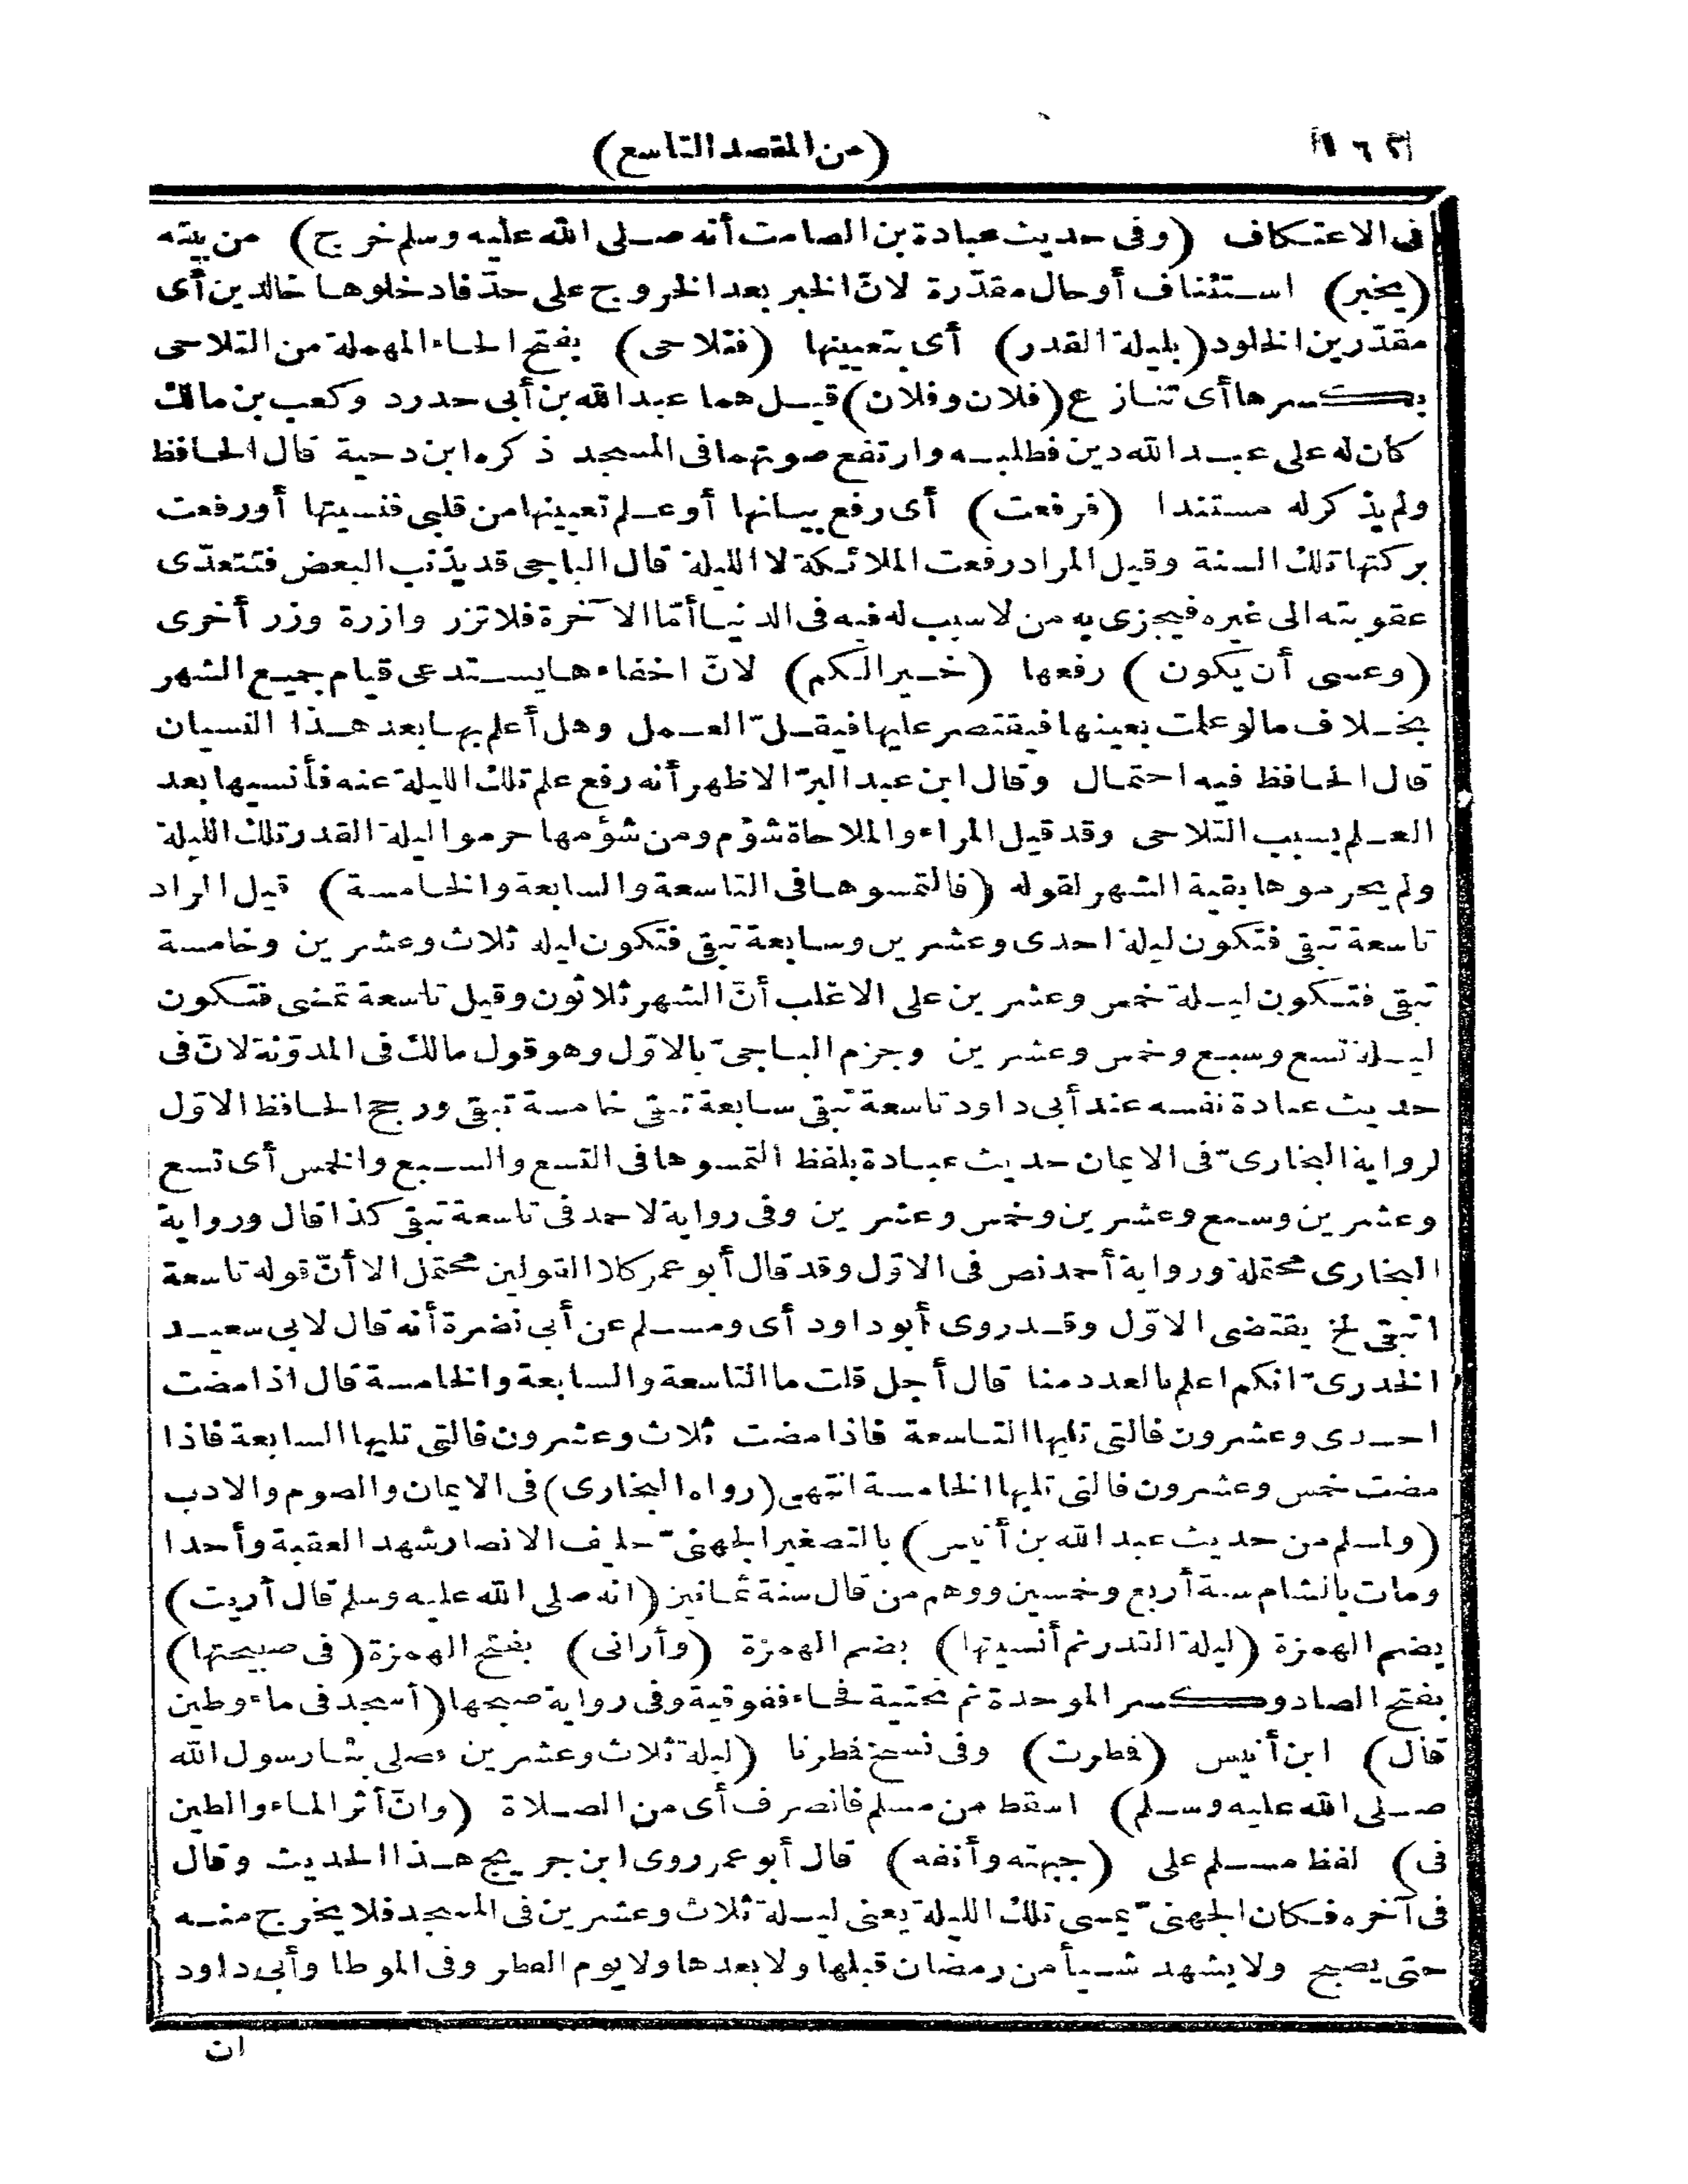 (من المقصد التاسع)
فى الاعتكاف (وفى حديث عبادة بن الصامت أنه صلى الله عليه وسلم خرج) من بيته
(يخبر) استئناف أو حال مقدّرة لانّ الخبر بعد الخروج على حدّ فادخلوها خالدين أى
مقدّرين الخلود (بليلة القدر) أى بتعيينها (فتلاحى) بفتح الحاء المهملة من التلاحى
بكسرها أى تنازع (فلان وفلان) قيل هما عبد الله بن أبى حدرد وكعب بن مالك
كان له على عبد الله دين فطلبه وارتفع صوتهما فى المسجد ذكره ابن دحية قال الحافظ
ولم يذكر له مستندا (فرفعت) أى رفع بيانها أو علم تعيينها من قلبى فنسيتها أو رفعت
بركتها تلك السنة وقيل المراد رفعت الملائكة لا الليلة قال الباجى قد يذنب البعض فتتعدّى
عقوبته الى غيره فيجزى به من لا سبب له فيه فى الدنيا أمّا الآخرة فلا تزر وازرة وزر أخرى
(وعسى أن يكون) رفعها (خيرا لكم) لانّ اخفاءها يستدعى قيام جميع الشهر
بخلاف ما لو علمت بعينها فيقتصر عليها فيقلّ العمل وهل أعلم بها بعد هذا النسيان
قال الحافظ فيه احتمال وقال ابن عبد البرّ الاظهر أنه رفع علم تلك الليلة عنه فأنسيها بعد
العلم بسبب التلاحى وقد قيل المراء والملاحاة شؤم ومن شؤمها حرموا ليلة القدر تلك الليلة
ولم يحرموها بقية الشهر لقوله (فالتمسوها فى التاسعة والسابعة والخامسة) قيل المراد
تاسعة تبقى فتكون ليلة احدى وعشرين وسابعة تبقى فتكون ليلة ثلاث وعشرين وخامسة
تبقى فتكون ليلة خمس وعشرين على الاغلب أنّ الشهر ثلاثون وقيل تاسعة تمضى فتكون
ليلة تسع وسبع وخمس وعشرين وجزم الباجىّ بالاوّل وهو قول مالك فى المدوّنة لانّ فى
حديث عبادة نفسه عند أبى داود تاسعة تبقى سابعة تبقى خامسة تبقى ورجح الحافظ الاوّل
لرواية البخارىّ فى الايمان حديث عبادة بلفظ التمسوها فى التسع والسبع والخمس أى تسع
وعشرين وسبع وعشرين وخمس وعشرين وفى رواية لاحمد فى تاسعة تبقى كذا قال ورواية
البخارى محتملة ورواية أحمد نص فى الاوّل وقد قال أبو عمر كلا القولين محتمل الا أنّ قوله تاسعة
تبقى الخ يقتضى الاوّل وقد روى أبو داود أى ومسلم عن أبى نضرة أنه قال لابى سعيد
الخدرىّ انكم اعلم بالعدد منا قال أجل قلت ما التاسعة والسابعة والخامسة قال اذا مضت
احدى وعشرون فالتى تليها التاسعة فاذا مضت ثلاث وعشرون فالتى تليها السابعة فاذا
مضت خمس وعشرون فالتى تليها الخامسة انتهى (رواه البخارى) فى الايمان والصوم والادب
(ولمسلم من حديث عبد الله بن أنيس) بالتصغير الجهنىّ حليف الانصار شهد العقبة وأحدا
ومات بالشام سنة أربع وخمسين ووهم من قال سنة ثمانين (انه صلى الله عليه وسلم قال أريت)
بضم الهمزة (ليلة القدر ثم أنسيتها) بضم الهمزة (وأرانى) بفتح الهمزة (فى صبيحتها)
بفتح الصاد وكسر الموحدة ثم تحتية فحاء ففوقية وفى رواية صبحها (أسجد فى ماء وطين
قال) ابن أنيس (فطرت) وفى نسخة فطرنا (ليلة ثلاث وعشرين فصلى بنا رسول الله
صلى الله عليه وسلم) اسقط من مسلم فانصرف أى من الصلاة (وانّ أثر الماء والطين
فى) لفظ مسلم على (جبهته وأنفه) قال أبو عمر روى ابن جريج هذا الحديث وقال
فى آخره فكان الجهنىّ يمسى تلك الليلة يعنى ليلة ثلاث وعشرين فى المسجد فلا يخرج منه
حتى يصبح ولا يشهد شيأ من رمضان قبلها ولا بعدها ولا يوم الفطر وفى الموطا وأبى داود
ان